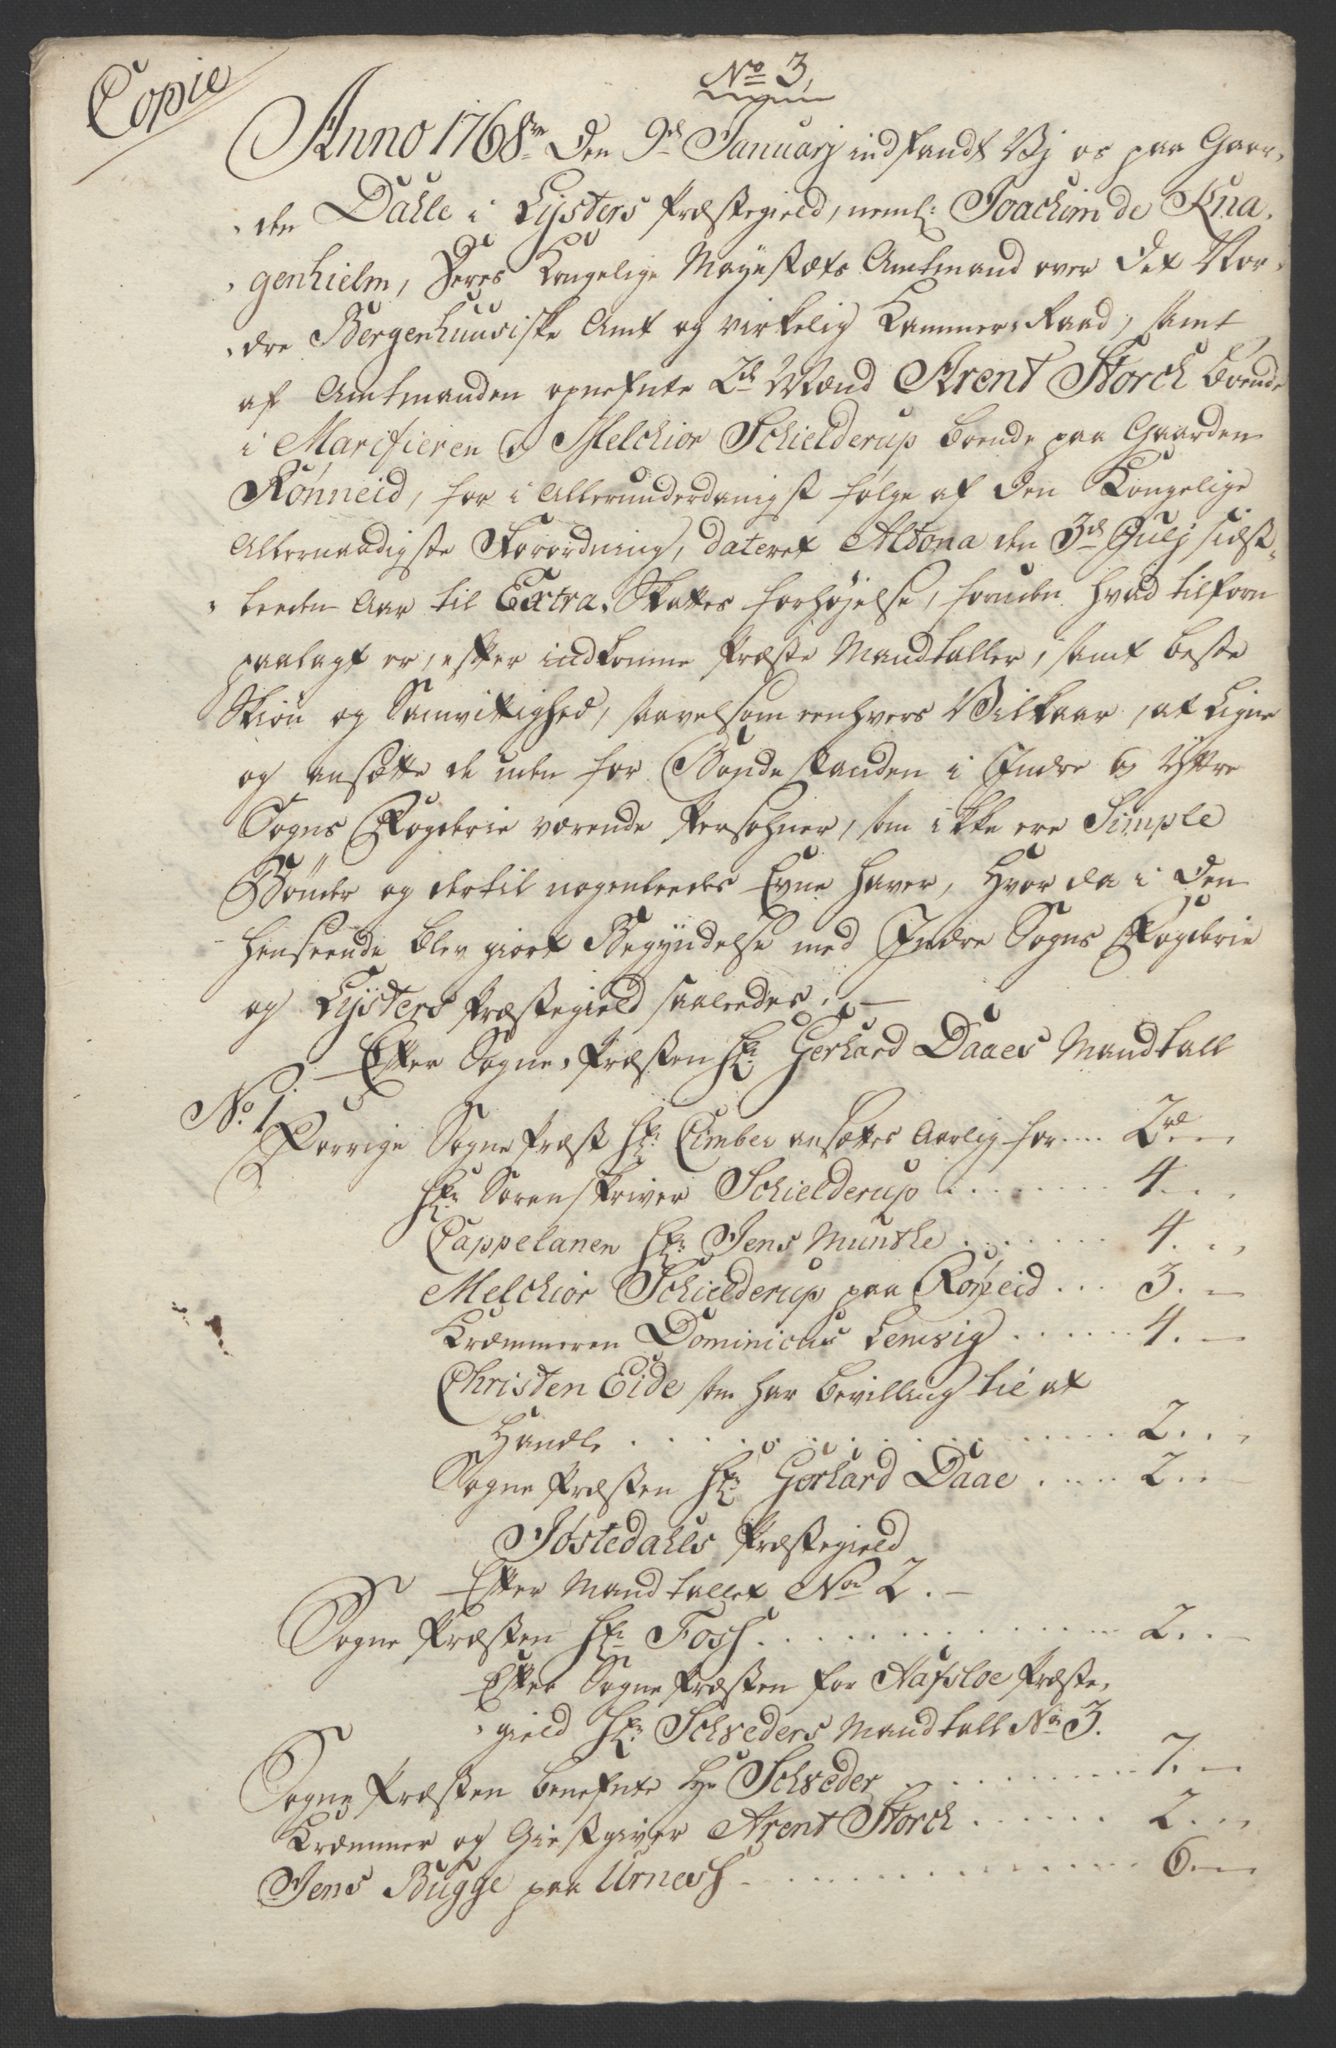 Copie
No 3,
Anno 1768 den 9de Januarj indfandt Vj os paa Gaar-
den Dahle i Lÿsters Præstegield, neml: Joachim de Kna-
genhielm, Deres Kongelige Mayestæts Amtmand over det Nor-
dre Bergenhuusiske Amt og virkelig Kammer-Raad, samt
af Amtmanden opnefnte 2de Mænd Arent Storch boende
i Marifieren og Melchior Schielderup boende paa Gaarden
Rönneid, for i Allerunderdanigst følge af den Kongelige
Allernaadigste Forordning, dateret Altona den 3de Julj sidst-
leeden Aar til Extra-Skattes forhøjelse, foruden hvad tilforn
paalagt er, efter indkomne Præste Mandtaller, samt beste
Skiøn og Samvittighed, saavelsom eenhvers Vilkaar, at Ligne
og ansætte de uden for Bondestanden i Indre og Yttre
Sogns Fogderie værende Persohner, som ikke ere Simple
Bønder og dertil nogenleedes Evne haver, Hvor da i den
henseende blev giort Begÿndelse med Indre Sogns Fogderie
og Lÿsters Præstegield saaleedes.
Efter Sogne-Præsten Hr: Gerhard Daaes Mandtall
No 1.
Forrige Sogne Præst Hr: Cimber ansættes Aarlig for .... 2rd
Hr: Sorenskriver Schielderup ....... 4. -
Cappelanen Hr: Jens Munthe ....... 4. -
Melchior Schielderup paa Röneid ... 3. -
Kræmmeren Dominicus Lemvig ...... 4. -
Christen Eide som har bevilling til at
Handle ....... 2. -
Sogne Præsten Hr: Gerhard Daae .... 2. -
Jostedahls Præstegield
Efter Mandtallet No 2. -
Sogne Præsten Hr: Fosh ....... 2. -
Efter Sogne Præsten for Hafsloe Præste-
gield Hr: Schreders Mandtall No 3.
Sogne Præsten benefnte Hr Schreder ....... 7. -
Kræmmer og Giestgiver Arent Storch ...... 2. -
Jens Bugge paa Urnesh ....... 6. -